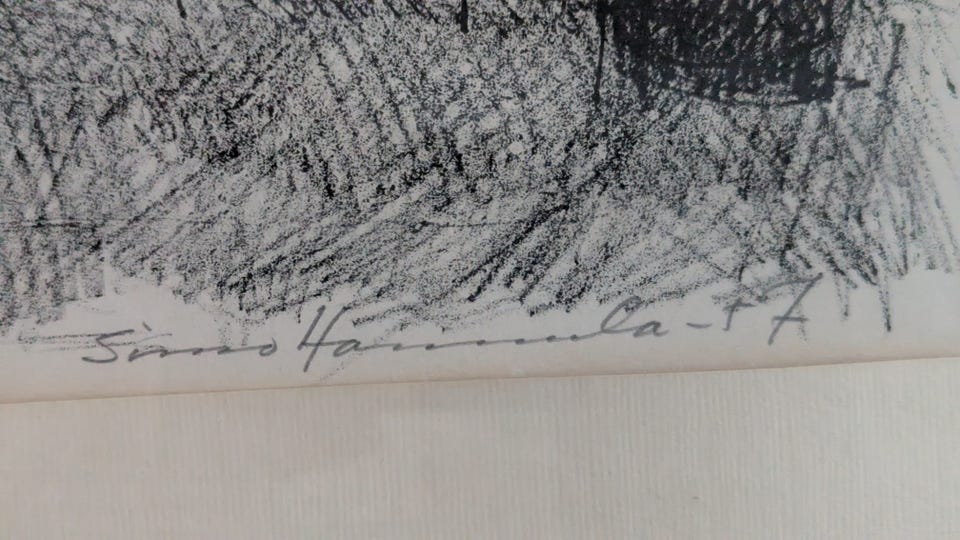 Simo Hannula -87